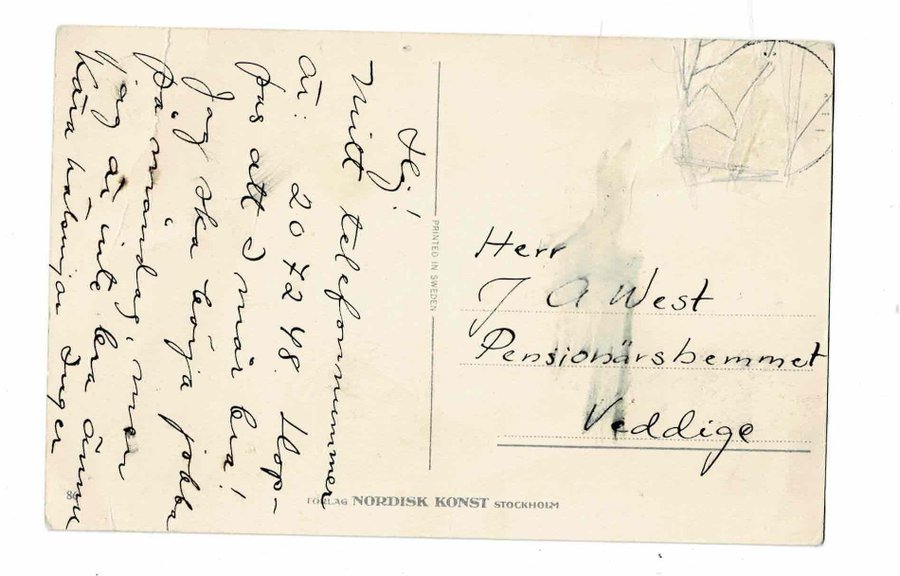 Hej!
Mitt telefonnummer
är: 20 72 48. Hop-
pas att I mår bra!
Jag ska börja jobba
på måndag, men
jag är inte bra ännu
Kära hälsningar Inger
PRINTED IN SWEDEN
Herr
J A West
Pensionärshemmet
Veddige
FÖRLAG NORDISK KONST STOCKHOLM